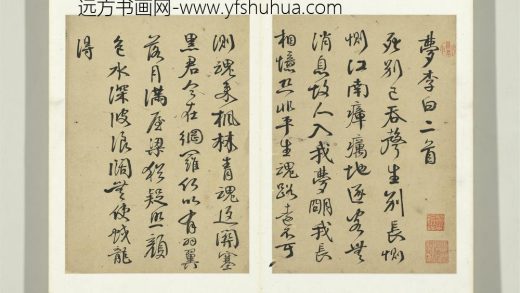 远方书画网- www.yfshuhua.com
夢李白二首
死別已吞聲生別長惻
惻江南瘴癘地逐客無
消息故人入我夢明我長
相憶恐非平生魂路遠不可
測魂來楓林青魂返關塞
黑君今在網羅何以有羽翼
落月滿屋梁猶疑照顏
色水深波浪闊無使蛟龍
得